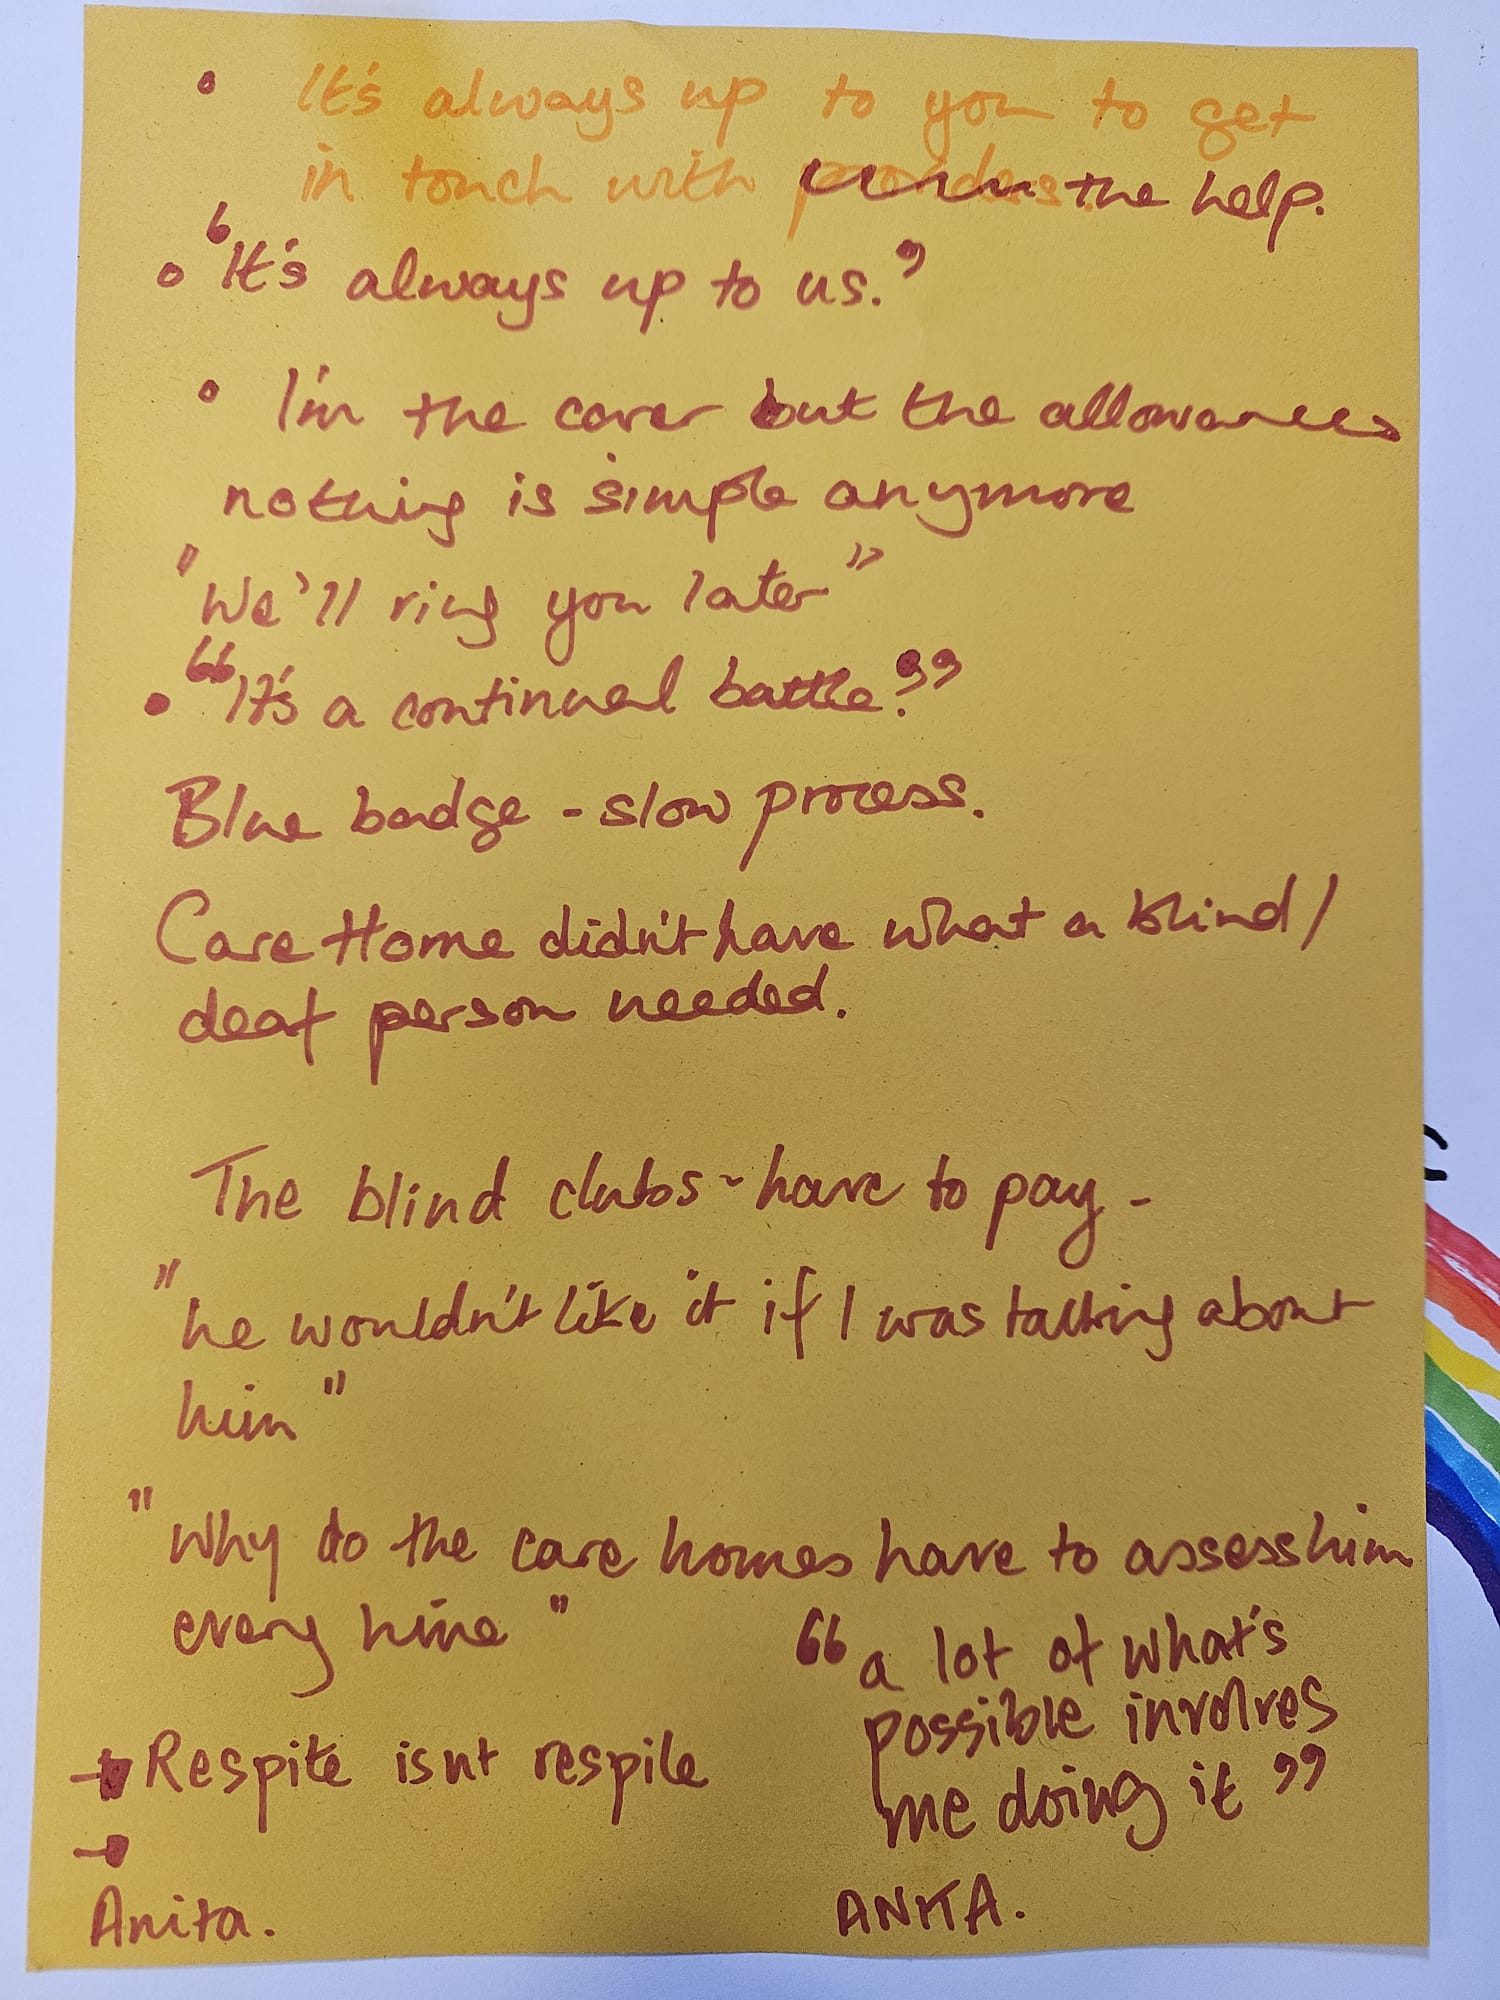 • It's always up to you to get
in touch with providers. the help.
• 'It's always up to us.'
• I'm the carer but the allowances
nothing is simple anymore
"We'll ring you later"
• "It's a continual battle."
Blue badge - slow process.
Care Home didn't have what a blind/
deaf person needed.
The blind clubs - have to pay -
"he wouldn't like it if I was talking about
him"
"Why do the care homes have to assess him
every time"
→ Respite isnt respite
"a lot of what's
possible involves
me doing it"
→
Anita.
ANITA.